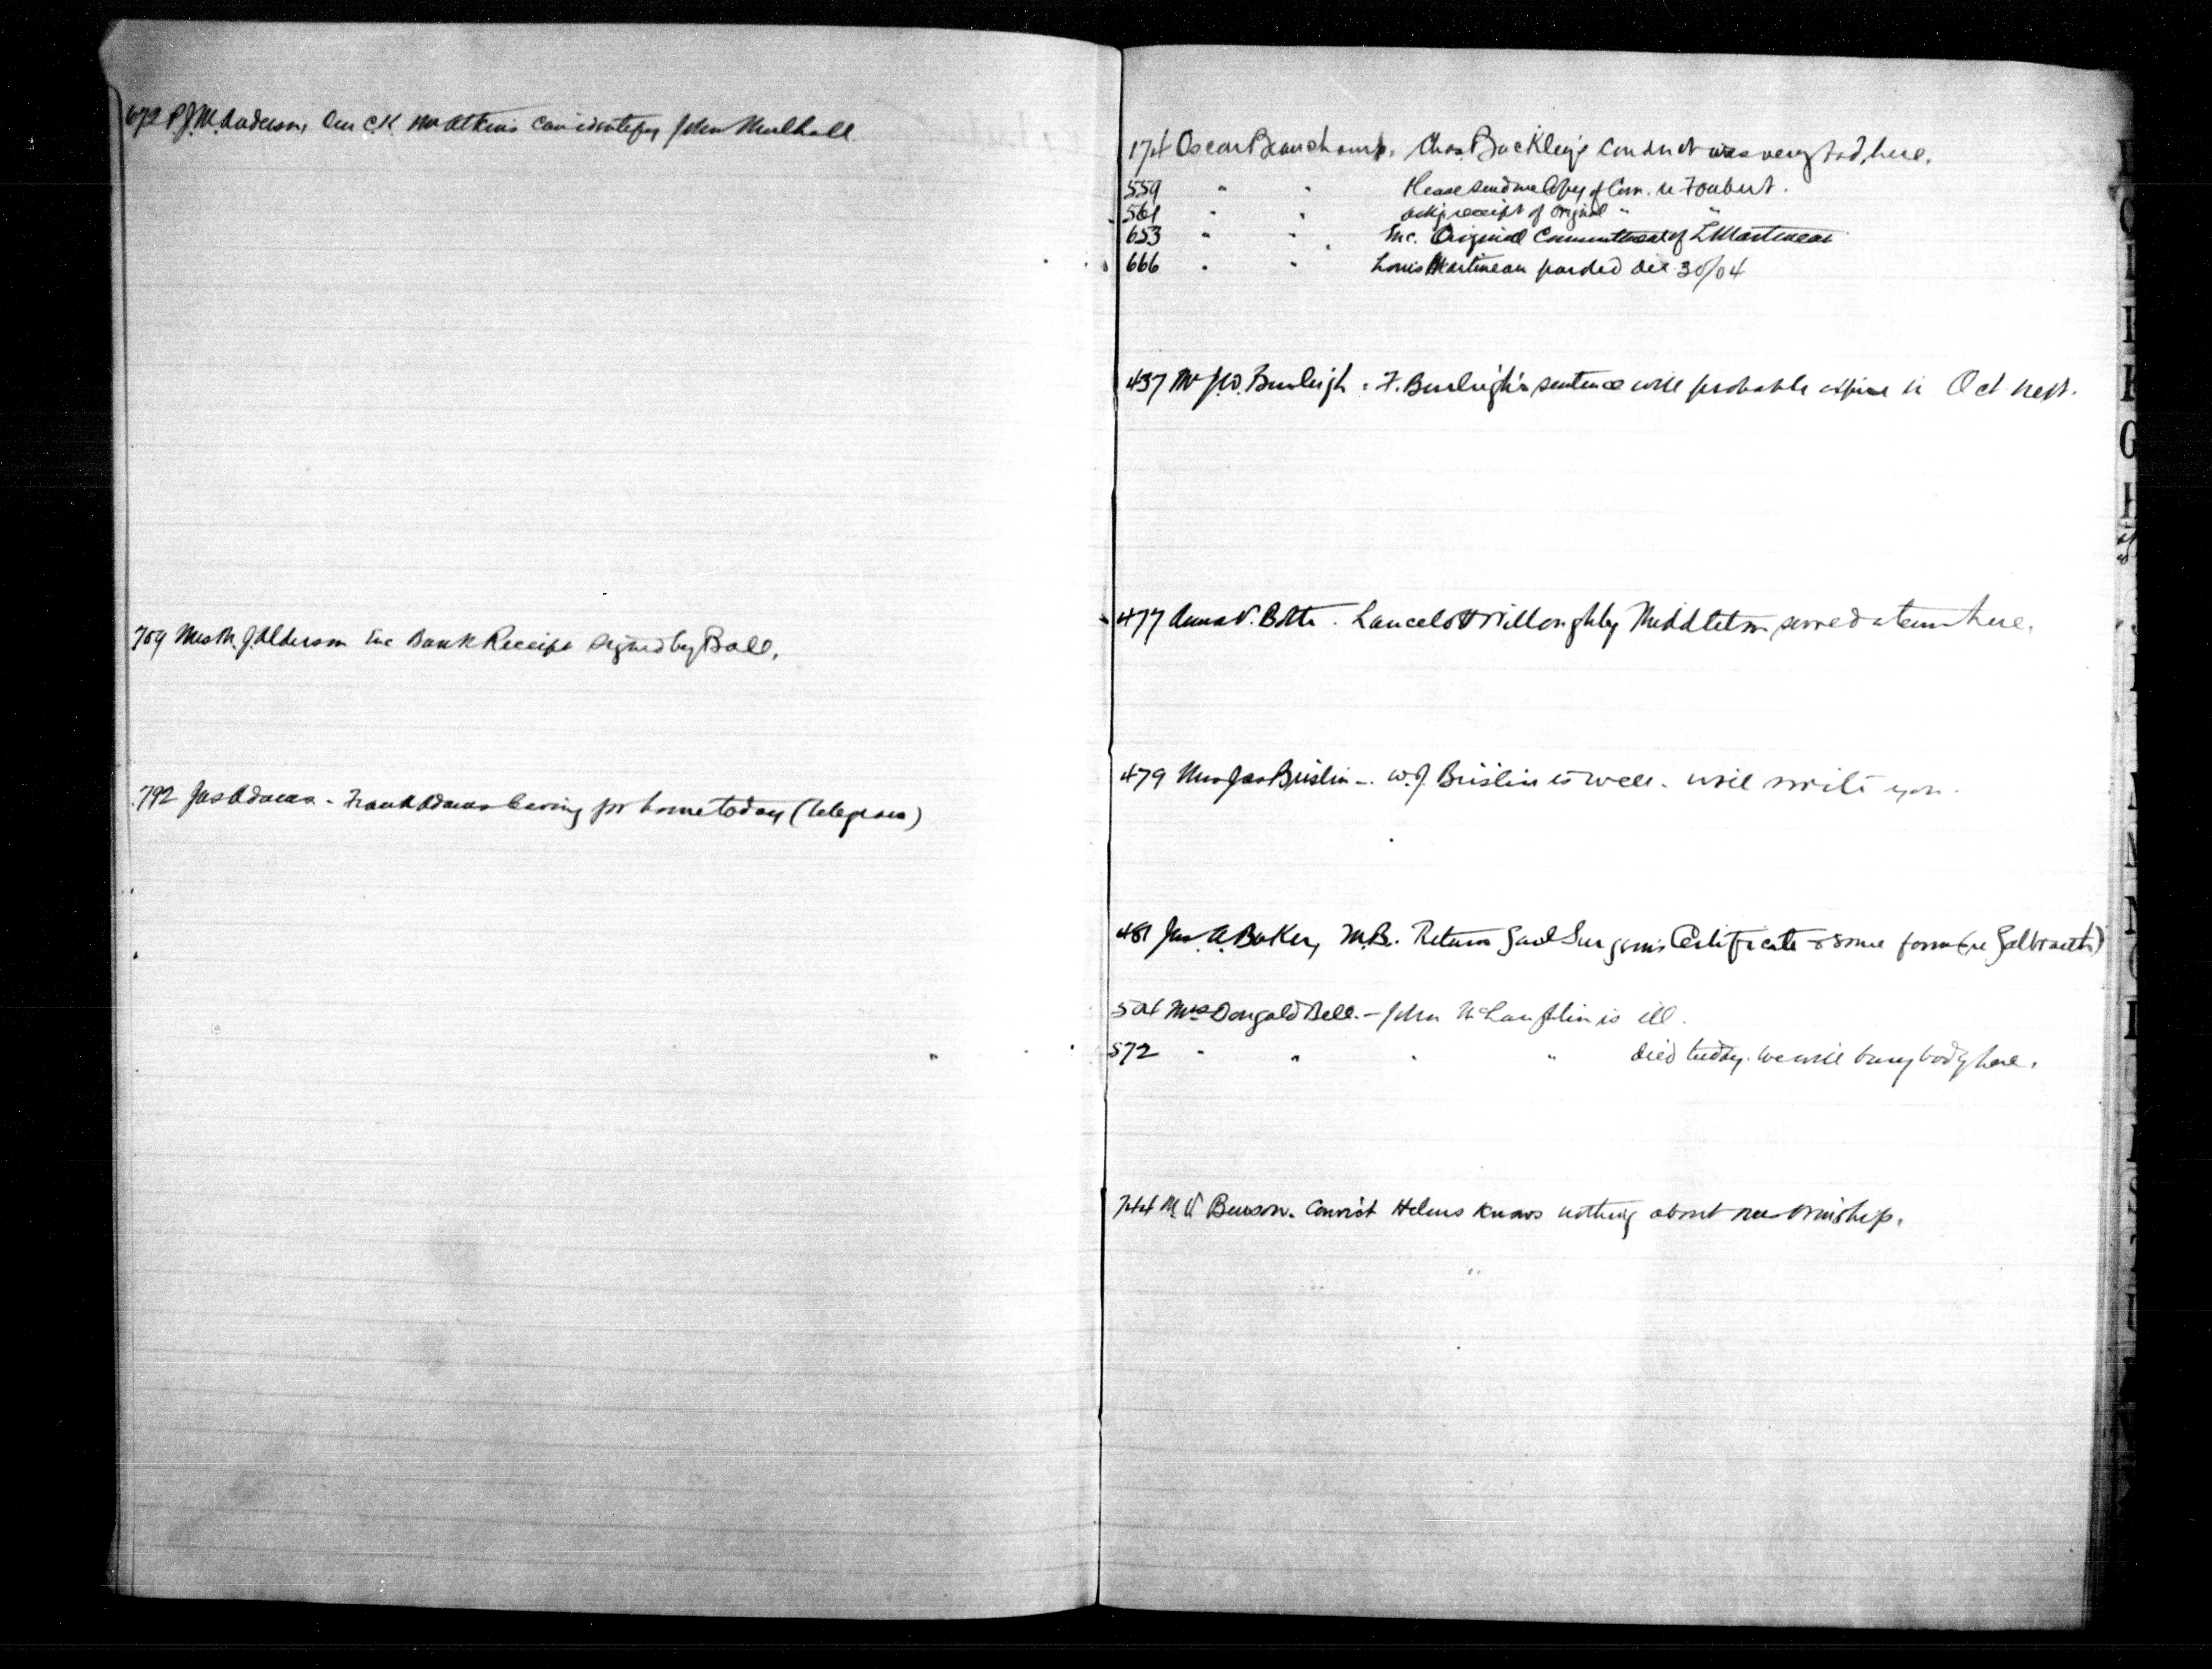 672 P.J.M. Anderson, Our C.K. Mr Atkins can identify John Mulhall.
759 Mrs M. J. Alderson Enc Bank Receipt signed by Ball.
792 Jas Adams - Frank Adams leaving for home today (telegram)
174 Oscar Beauchamp, Chas. Buckley's conduct was very bad, here.
559 " " Please send me Copy of Com. re Foubert.
561 " " ackg receipt of original " "
653 " " Enc. Original Commitment of L Martineau
666 " " Louis Martineau parded Dec 30/04
437 Mr J.W. Burleigh - F. Burleigh's sentence will probable expire in Oct next.
477 Anna V. Botte - Lancelot Willoughby Middleton served a term here.
479 Mrs Jas Brislin - W.J. Brislin is well - will write you.
481 Jas. A. Baker, M.B. Return Gaol Surgeon's Certificate & some form (re Galbraith)
504 Mrs Dongald Bell - John McLaughlin is ill.
572 " " " " died today. We will bury body here.
744 M. V. Benson. Convict Helms knows nothing about